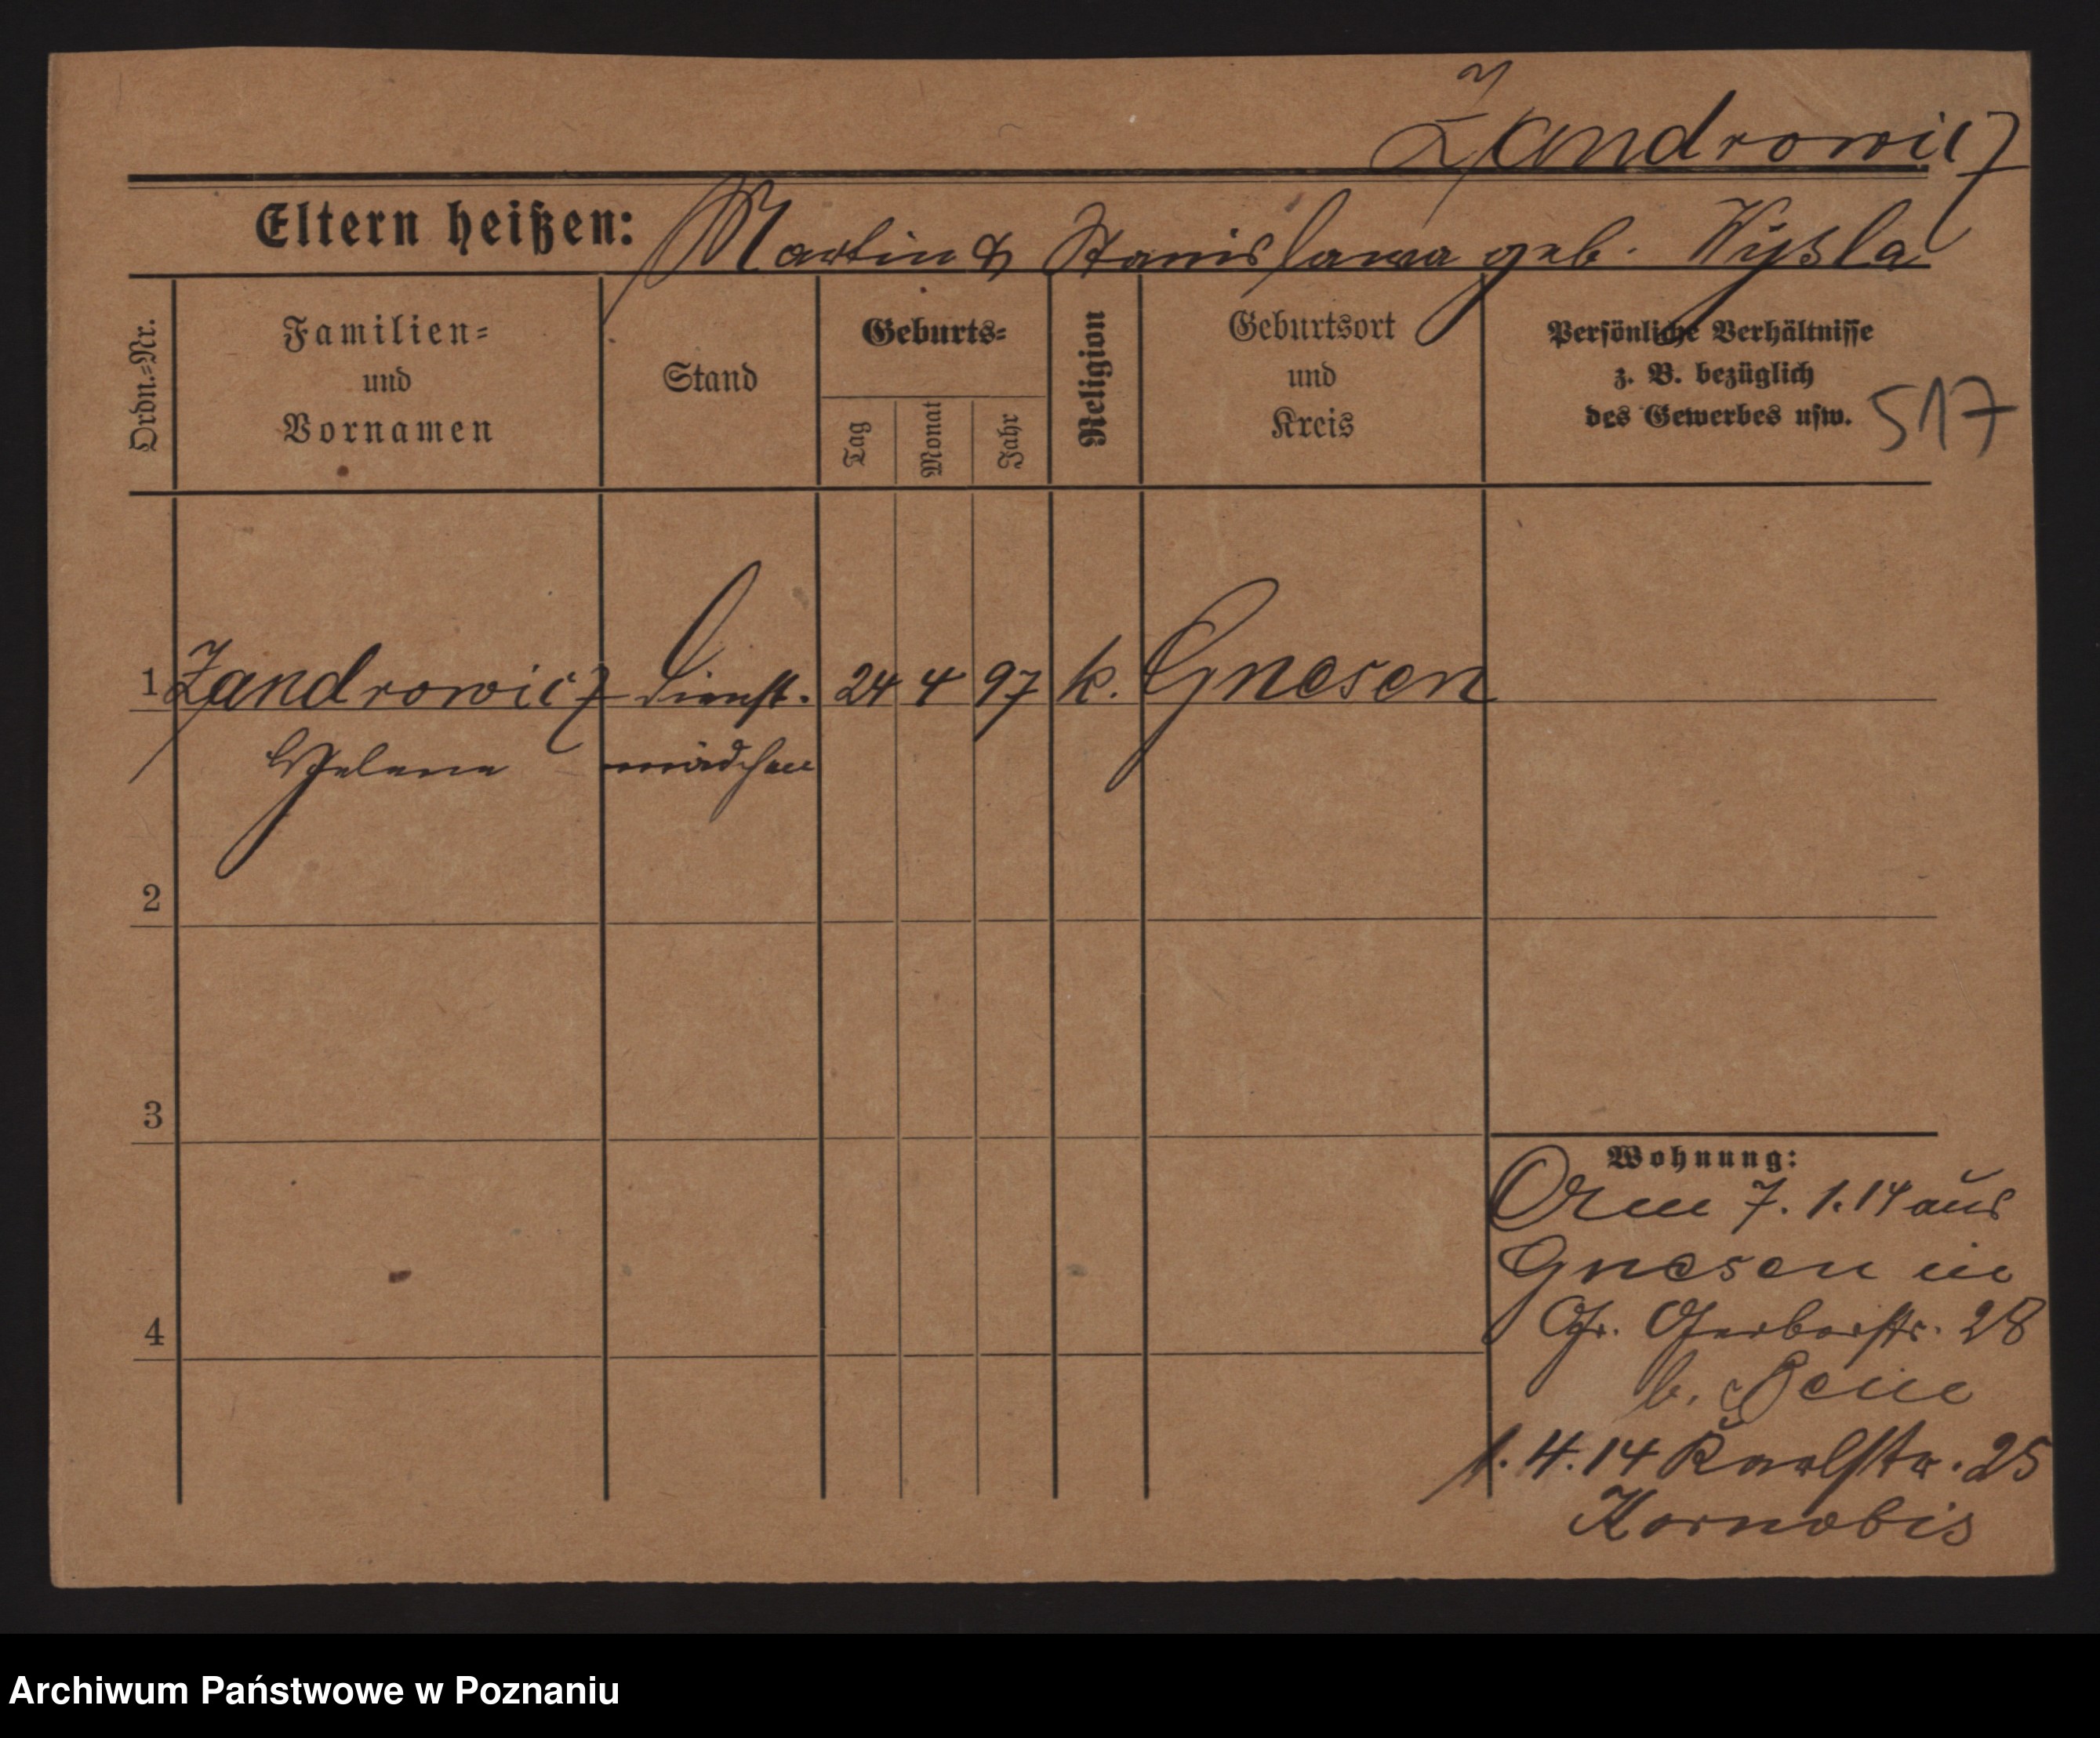 Zandrowicz
Eltern heißen: Martin & Stanislawa geb. Wysla
Ordn.=Nr.
Familien=
und
Vornamen
Stand
Geburts=
Tag
Monat
Jahr
Religion
Geburtsort
und
Kreis
Persönliche Verhältnisse
z. B. bezüglich
des Gewerbes usw.
517
1 Zandrowicz Dienst. 24 4 97 k. Gnesen
Helene mädchen
2
3
4
Wohnung:
7. 1. 14 aus
Gnesen in
Gr. Gerberstr. 28
b.
1. 4. 14 Karlstr. 25
Kornobis
Archiwum Państwowe w Poznaniu